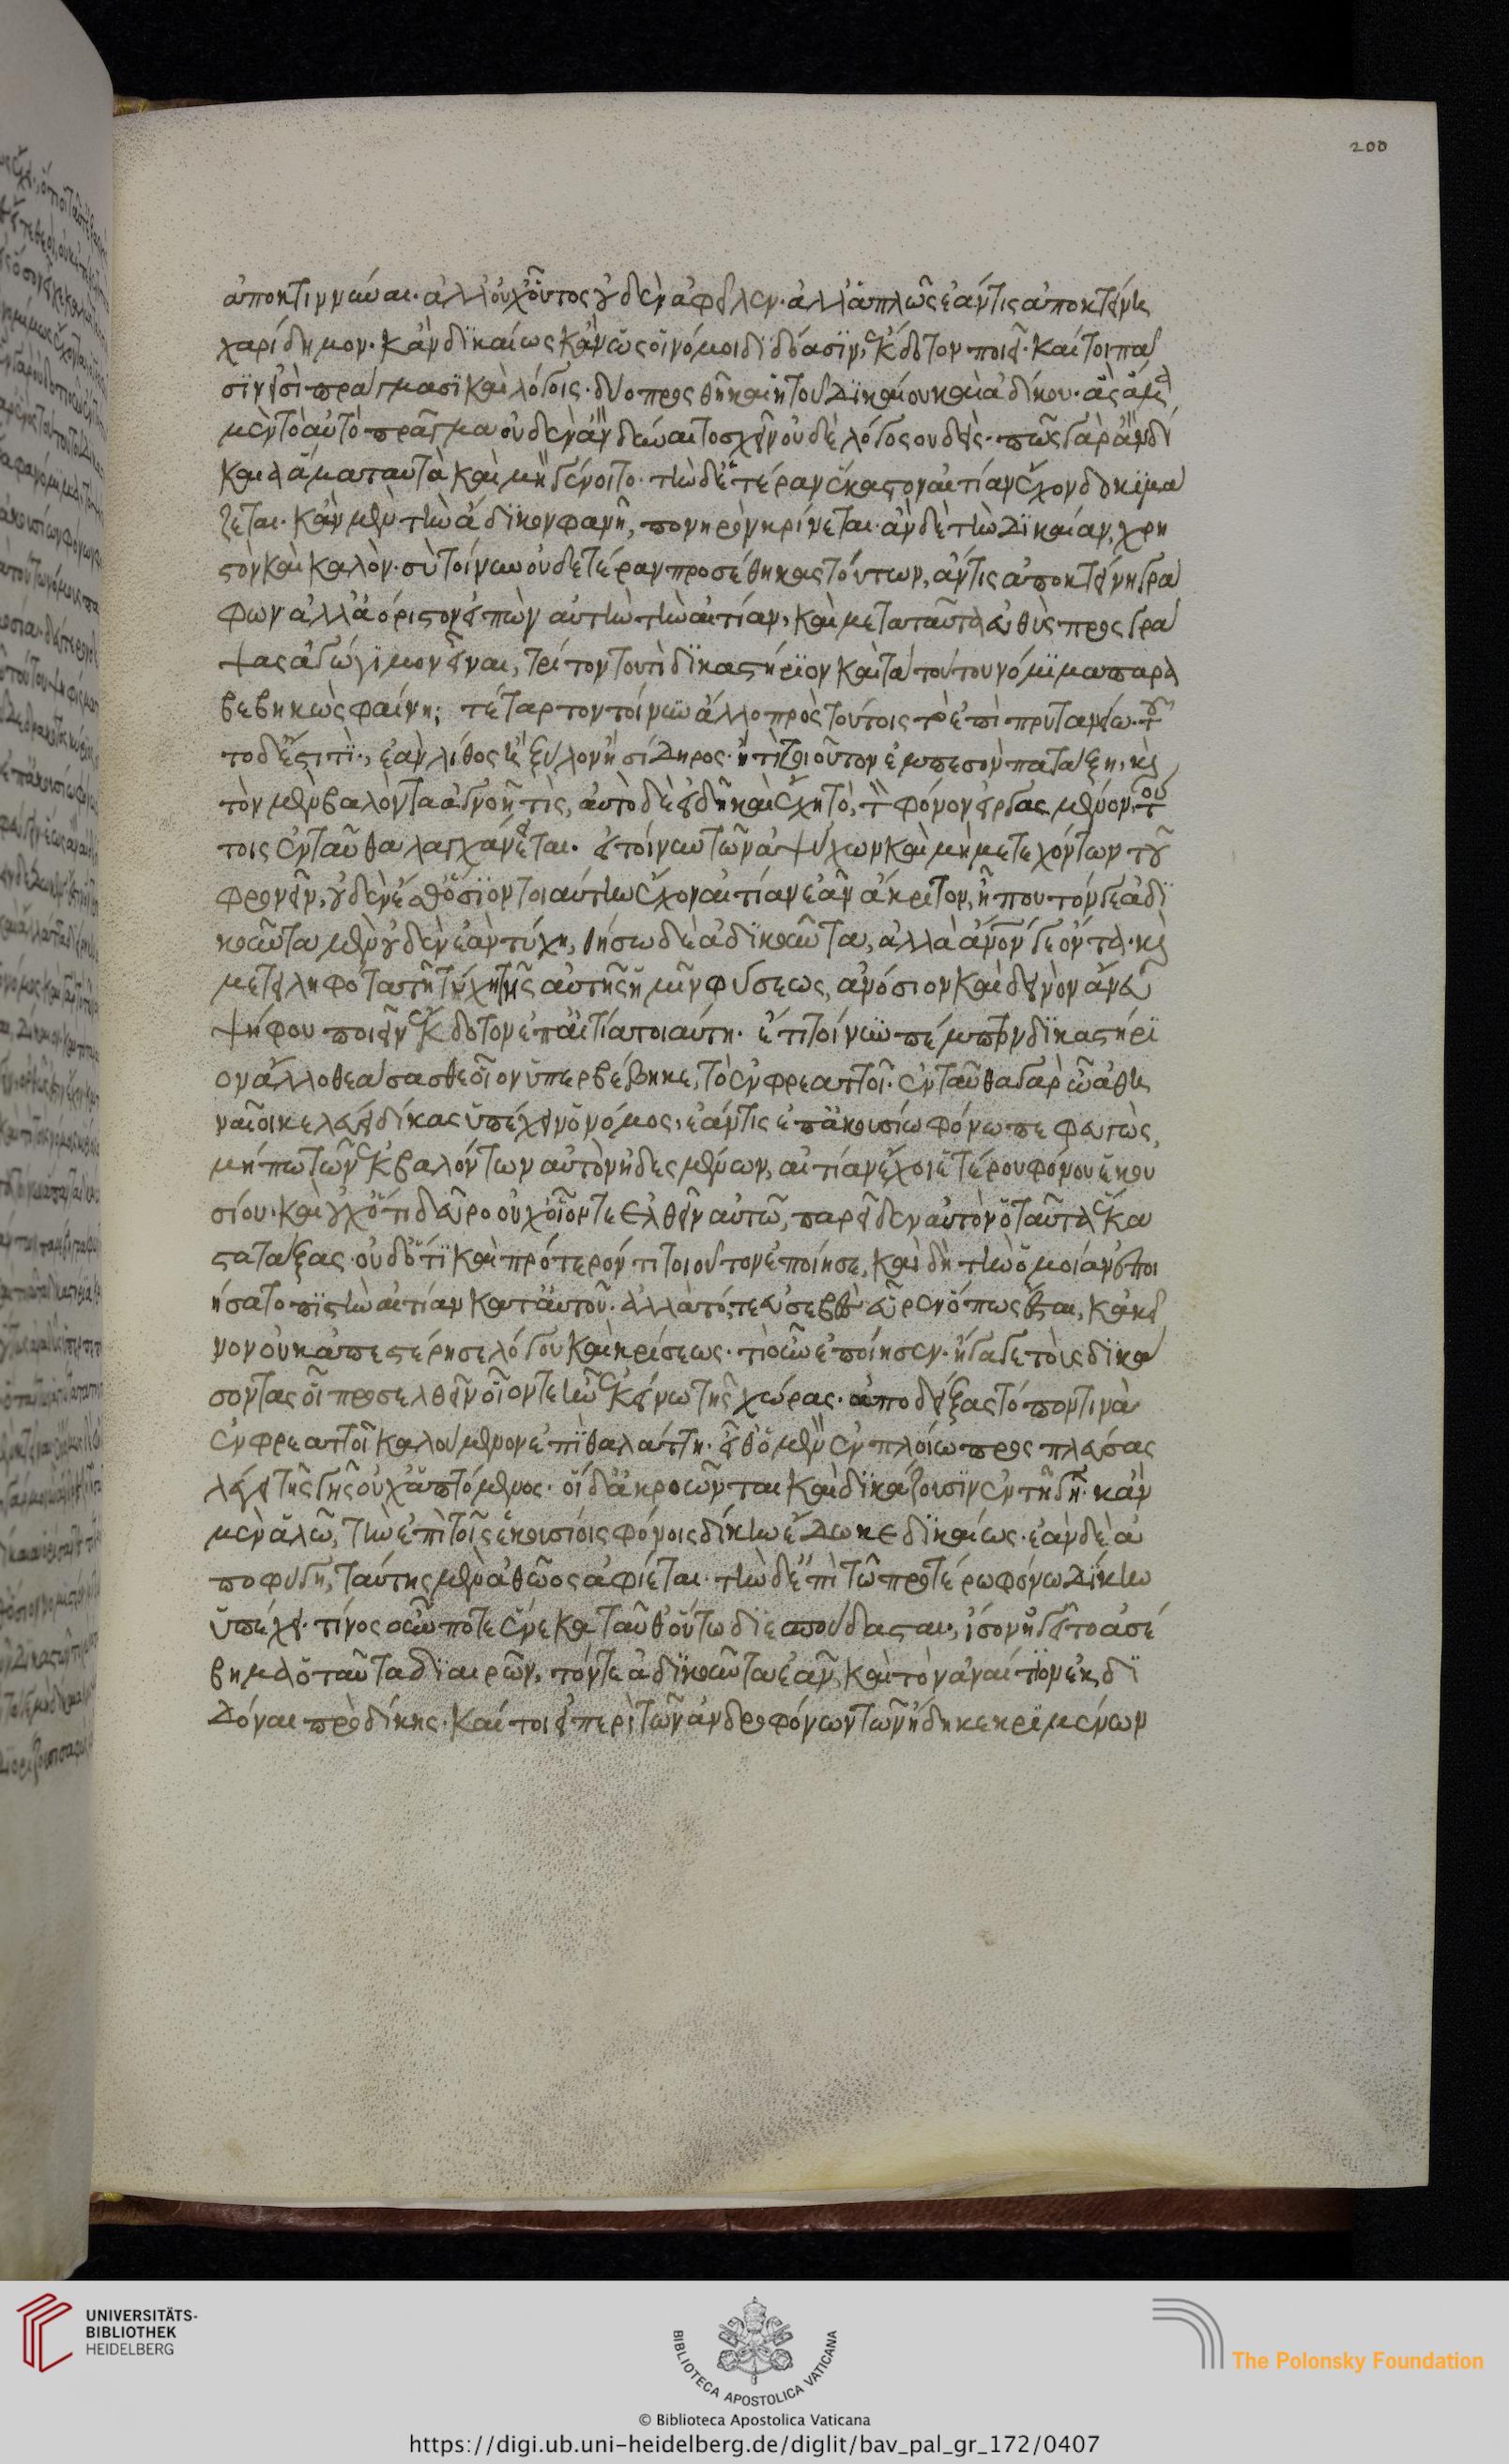 200
ἀποκτιννύναι· ἀλλ' οὐχ οὗτος οὐδὲν ἀφεῖλεν· ἀλλ' ἁπλῶς ἐάν τις ἀποκτείνῃ
χαρίδημον· κἂν δικαίως κἂν ὡς οἱ νόμοι διδόασιν, ἔκδοτον ποιεῖ· καίτοι πᾶ
σίν εἰσι πράγμασι καὶ λόγοις δύο προσθῆκαι ἡ τοῦ δικαίου καὶ ἀδίκου· ἃς ἅμα
μὲν τὸ αὐτὸ πρᾶγμα οὐδὲν ἂν δύναιτο σχεῖν οὐδὲ λόγος ουδείς· πῶς γὰρ ἂν δί
καια ἅμα ταυτὰ καὶ μὴ γένοιτο· τὴν δ' ἑτέραν ἕκαστον αἰτίαν ἔχον δοκιμά
ζεται· κἂν μὲν τὴν ἄδικον φανῇ, πονηρὸν κρίνεται· ἂν δὲ τὴν δικαίαν, χρη
στὸν καὶ καλὸν· σὺ τοίνυν οὐδετέραν προσέθηκας τούτων, ἄν τις ἀποκτείνῃ γρά
φων ἀλλ' ἀόριστον εἰπὼν αὐτὴν τὴν αἰτίαν, καὶ μετὰ ταῦτα εὐθὺς προσγρά
ψας ἀγώγιμον εἶναι, τρίτον τουτὶ δικαστήριον καὶ τὰ τούτου νόμιμα παρα
βεβηκὼς φαίνῃ; τέταρτον τοίνυν ἄλλο πρὸς τούτοις τὸ ἐπὶ πρυτανείῳ· τοῦ
το δ' ἔστι τί·, ἐὰν λίθος ἢ ξύλον ἢ σίδηρος· ἤ τι τοιοῦτον ἐμπεσὸν πατάξῃ, καὶ
τὸν μὲν βαλόντα ἀγνοῇ τις, αὐτὸ δὲ εἰδῇ καὶ ἔχῃ τὸ, τὸν φόνον εἰργασμένον, τού
τοις ἐνταῦθα λαγχάνεται· εἰ τοίνυν τῶν ἀψύχων καὶ μὴ μετεχόντων τοῦ
φρονεῖν, οὐδέν ἐσθ' ὅσιον τοιαύτην ἔχον αἰτίαν ἐᾶν ἄκριτον, ἦπου τόν γε ἀδι
κοῦντα μὲν οὐδὲν ἐὰν τύχῃ, θήσω δὲ ἀδικοῦντα, ἀλλὰ ἄνον γε ὄντα· καὶ
μετειληφότα τῇ τύχῃ τῆς αὐτῆς ἡμῖν φύσεως, ἀνόσιον καὶ δεινὸν ἄνευ
ψήφου ποιεῖν ἔκδοτον ἐπ' αἰτίᾳ τοιαύτῃ· ἔτι τοίνυν πέμπτον δικαστήρι
ον ἄλλο θεάσασθε οἷον ὑπερβέβηκε, τὸ ἐν φρεαττοῖ· ἐνταῦθα γὰρ ὦ ἀθη
ναῖοι κελεύει δίκας ὑπέχειν ὁ νόμος· ἐάν τις ἐπ' ἀκουσίῳ φόνῳ πεφευγὼς,
μήπω τῶν ἐκβαλόντων αὐτὸν ᾐδεσμένων, αἰτίαν ἔχῃ ἑτέρου φόνου ἑκου
σίου· καὶ οὐχ ὅτι δεῦρο οὐχ οἷόν τε ἐλθεῖν αὐτῷ, παρεῖδεν αὐτὸν ὁ ταῦτα ἕκα
στα τάξας· οὐδ' ὅτι καὶ πρότερόν τι τοιοῦτον ἐποίησε, καὶ δὴ τὴν ὁμοίαν ἐποι
ήσατο πιστὴν αἰτίαν κατ' αὐτοῦ· ἀλλὰ τό, τε εὐσεβὲς εὗρεν ὅπως ἔσται, κἀκεῖ
νον οὐκ ἀπεστέρησε λόγου καὶ κρίσεως· τί οὖν ἐποίησεν· ἤγαγε τοὺς δικά
σοντας οἷ προσελθεῖν οἷόν τε ἦν ἐκείνῳ τῆς χώρας· ἀποδείξας τόπον τινὰ
ἐν φρεαττοῖ καλούμενον ἐπὶ θαλάττῃ· εἶθ' ὁ μὲν ἐν πλοίῳ προσπλεύσας
λέγει τῆς γῆς οὐχ ἁπτόμενος· οἱ δ' ἀκροῶνται καὶ δικάζουσιν ἐν τῇ γῇ· κἂν
μὲν ἁλῷ, τὴν ἐπὶ τοῖς ἑκουσίοις φόνοις δίκην ἔδωκε δικαίως· ἐὰν δὲ ἀ
ποφύγῃ, ταύτης μὲν ἀθῷος ἀφίεται· τὴν δ' ἐπὶ τῷ προτέρῳ φόνῳ δίκην
ὑπέχει· τίνος οὖν ποτε ἕνεκα ταῦθ' οὕτω διεσπούδασται, ἴσον ἡγεῖτο ἀσέ
βημα ὁ ταῦτα διαιρῶν, τόν τε ἀδικοῦντα ἐᾶν, καὶ τὸν ἀναίτιον ἐκδι
δόναι πρὸ δίκης· καίτοι εἰ περὶ τῶν ἀνδροφόνων τῶν ἤδη κεκριμένων
UNIVERSITÄTS-
BIBLIOTHEK
HEIDELBERG
BIBLIOTECA APOSTOLICA VATICANA
The Polonsky Foundation
© Biblioteca Apostolica Vaticana
https://digi.ub.uni-heidelberg.de/diglit/bav_pal_gr_172/0407